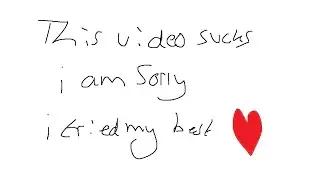 This video sucks
i am sorry
i tried my best